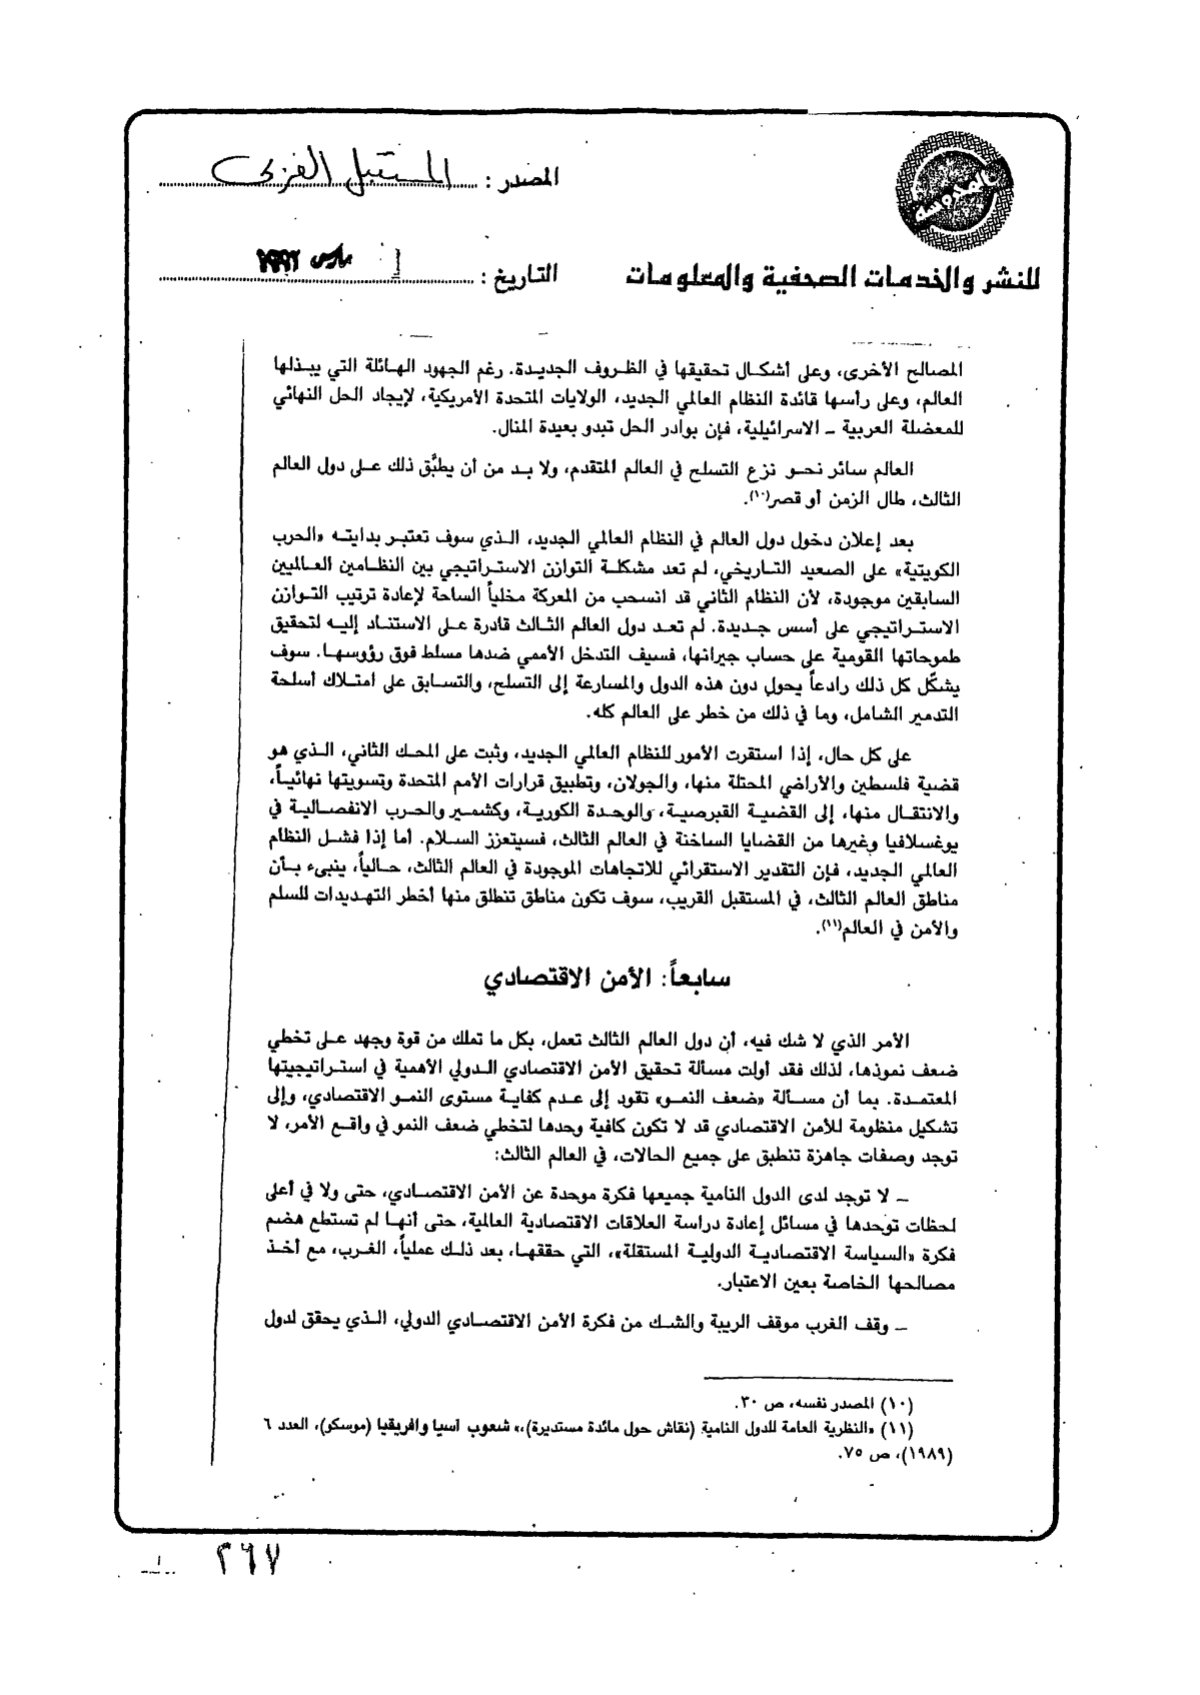 المصدر : المستقبل العربي
التاريخ : ١ مارس ١٩٩٢
للنشر والخدمات الصحفية والمعلومات
المصالح الأخرى، وعلى أشكال تحقيقها في الظروف الجديدة. رغم الجهود الهائلة التي يبذلها
العالم، وعلى رأسها قائدة النظام العالمي الجديد، الولايات المتحدة الأمريكية، لإيجاد الحل النهائي
للمعضلة العربية ــ الاسرائيلية، فإن بوادر الحل تبدو بعيدة المنال.
العالم سائر نحو نزع التسلح في العالم المتقدم، ولا بد من أن يطبَّق ذلك على دول العالم
الثالث، طال الزمن أو قصر(١٠).
بعد إعلان دخول دول العالم في النظام العالمي الجديد، الذي سوف تعتبر بدايته «الحرب
الكويتية» على الصعيد التاريخي، لم تعد مشكلة التوازن الاستراتيجي بين النظامين العالميين
السابقين موجودة، لأن النظام الثاني قد انسحب من المعركة مخلياً الساحة لإعادة ترتيب التوازن
الاستراتيجي على أسس جديدة. لم تعد دول العالم الثالث قادرة على الاستناد إليه لتحقيق
طموحاتها القومية على حساب جيرانها، فسيف التدخل الأممي ضدها مسلط فوق رؤوسها. سوف
يشكّل كل ذلك رادعاً يحول دون هذه الدول والمسارعة إلى التسلح، والتسابق على امتلاك أسلحة
التدمير الشامل، وما في ذلك من خطر على العالم كله.
على كل حال، إذا استقرت الأمور للنظام العالمي الجديد، وثبت على المحك الثاني، الذي هو
قضية فلسطين والأراضي المحتلة منها، والجولان، وتطبيق قرارات الأمم المتحدة وتسويتها نهائياً،
والانتقال منها، إلى القضية القبرصية، والوحدة الكورية، وكشمير والحرب الانفصالية في
يوغسلافيا وغيرها من القضايا الساخنة في العالم الثالث، فسيتعزز السلام. أما إذا فشل النظام
العالمي الجديد، فإن التقدير الاستقرائي للاتجاهات الموجودة في العالم الثالث، حالياً، ينبىء بأن
مناطق العالم الثالث، في المستقبل القريب، سوف تكون مناطق تنطلق منها أخطر التهديدات للسلم
والأمن في العالم(١١).
سابعاً: الأمن الاقتصادي
الأمر الذي لا شك فيه، أن دول العالم الثالث تعمل، بكل ما تملك من قوة وجهد على تخطي
ضعف نموذها، لذلك فقد أولت مسألة تحقيق الأمن الاقتصادي الدولي الأهمية في استراتيجيتها
المعتمدة. بما أن مسألة «ضعف النمو» تقود إلى عدم كفاية مستوى النمو الاقتصادي، وإلى
تشكيل منظومة للأمن الاقتصادي قد لا تكون كافية وحدها لتخطي ضعف النمو في واقع الأمر، لا
توجد وصفات جاهزة تنطبق على جميع الحالات، في العالم الثالث:
ــ لا توجد لدى الدول النامية جميعها فكرة موحدة عن الأمن الاقتصادي، حتى ولا في أعلى
لحظات توحدها في مسائل إعادة دراسة العلاقات الاقتصادية العالمية، حتى أنها لم تستطع هضم
فكرة «السياسة الاقتصادية الدولية المستقلة»، التي حققها، بعد ذلك عملياً، الغرب، مع أخذ
مصالحها الخاصة بعين الاعتبار.
ــ وقف الغرب موقف الريبة والشك من فكرة الأمن الاقتصادي الدولي، الذي يحقق لدول
(١٠) المصدر نفسه، ص ٣٠.
(١١) «النظرية العامة للدول النامية (نقاش حول مائدة مستديرة)،» شعوب آسيا وافريقيا (موسكو)، العدد ٦
(١٩٨٩)، ص ٧٥.
٢٦٧